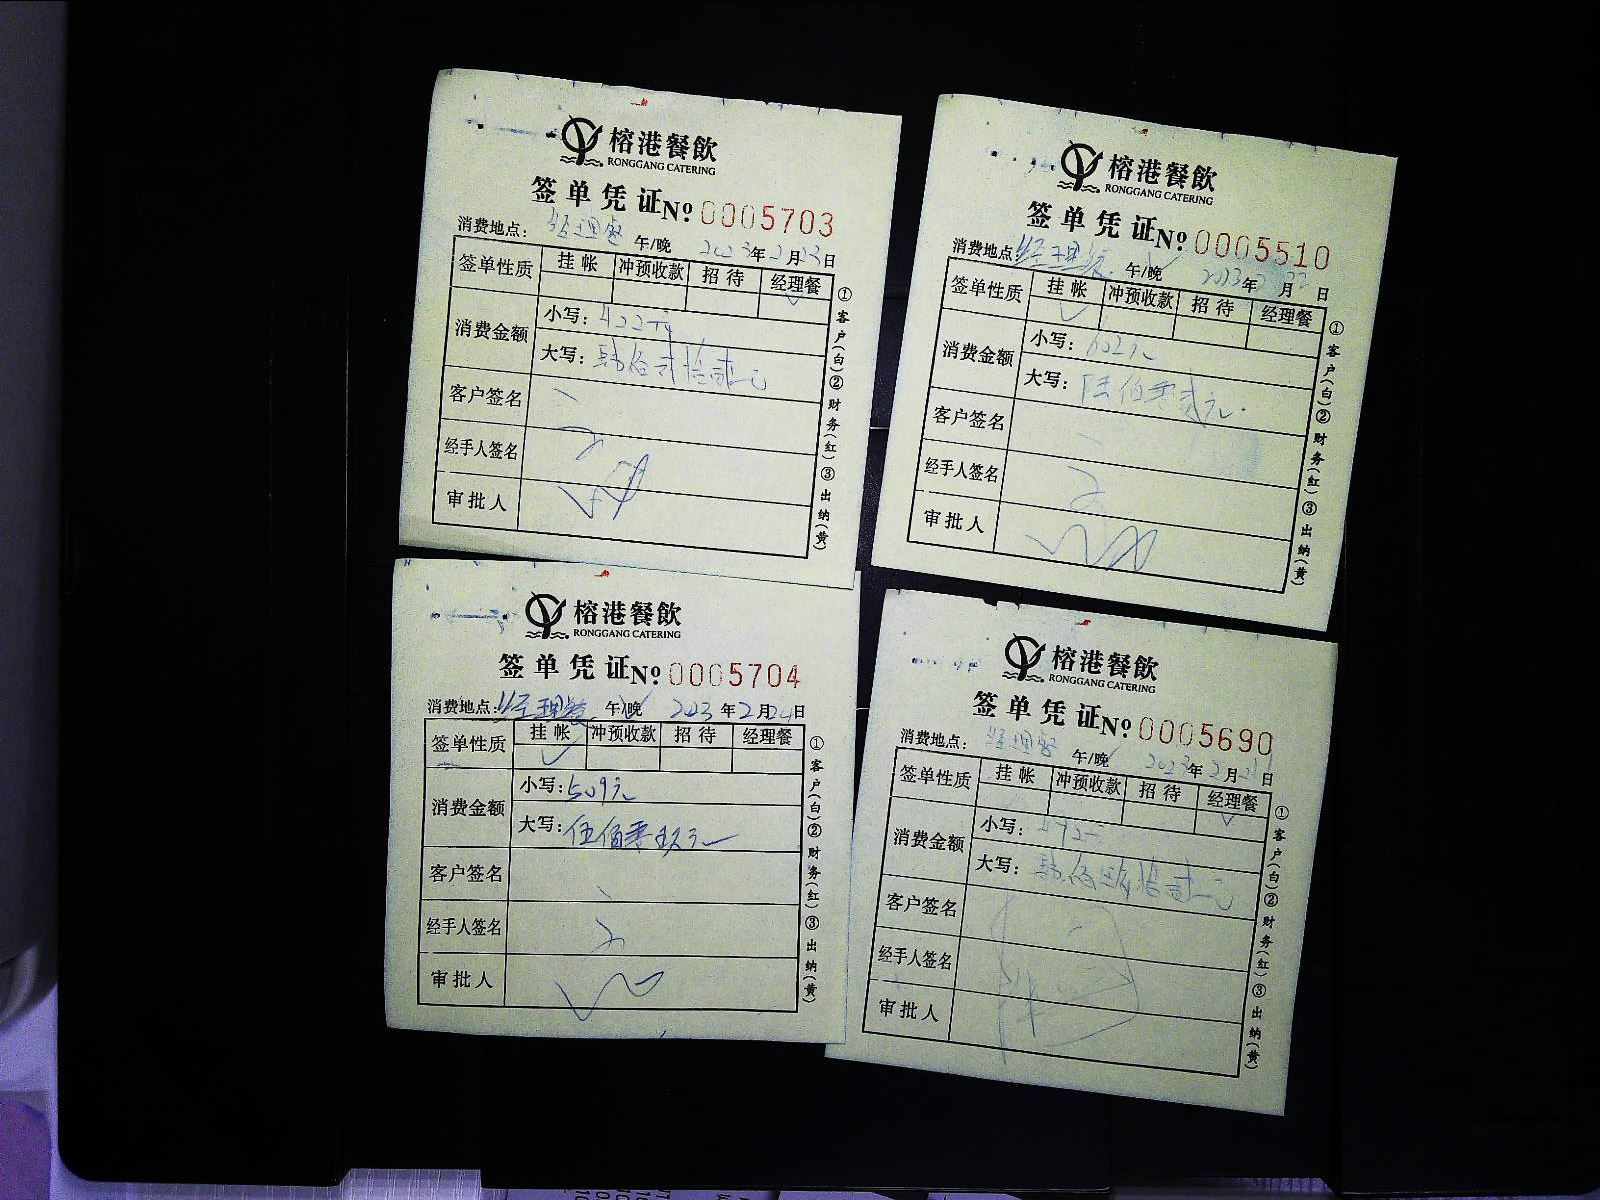 榕港餐飲
RONGGANG CATERING
签单凭证 Nº 0005703
消费地点： 经理餐 午/晚 2023年2月23日
签单性质 挂帐 冲预收款 招待 经理餐
✓
消费金额 小写：422元
大写：肆佰贰拾贰元
客户签名
经手人签名
审批人
①客户（白）②财务（红）③出纳（黄）
榕港餐飲
RONGGANG CATERING
签单凭证 Nº 0005510
消费地点 经理餐 午/晚 2023年 月 日
签单性质 挂帐 冲预收款 招待 经理餐
✓
消费金额 小写：602元
大写：陆佰零贰元
客户签名
经手人签名
审批人
①客户（白）②财务（红）③出纳（黄）
榕港餐飲
RONGGANG CATERING
签单凭证 Nº 0005704
消费地点：经理餐 午/晚 2023年2月24日
签单性质 挂帐 冲预收款 招待 经理餐
✓
消费金额 小写：509元
大写：伍佰零玖元
客户签名
经手人签名
审批人
①客户（白）②财务（红）③出纳（黄）
榕港餐飲
RONGGANG CATERING
签单凭证 Nº 0005690
消费地点： 经理餐 午/晚 2023年2月21日
签单性质 挂帐 冲预收款 招待 经理餐
✓
消费金额 小写：492元
大写：肆佰玖拾贰元
客户签名
经手人签名
审批人
①客户（白）②财务（红）③出纳（黄）